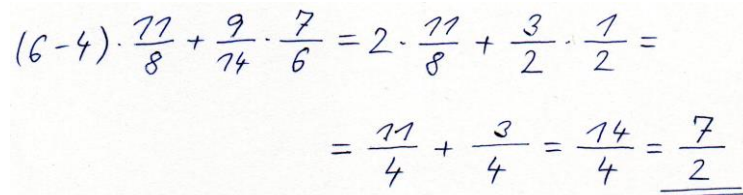 (6-4) · 11/8 + 9/14 · 7/6 = 2 · 11/8 + 3/2 · 1/2 =
= 11/4 + 3/4 = 14/4 = 7/2